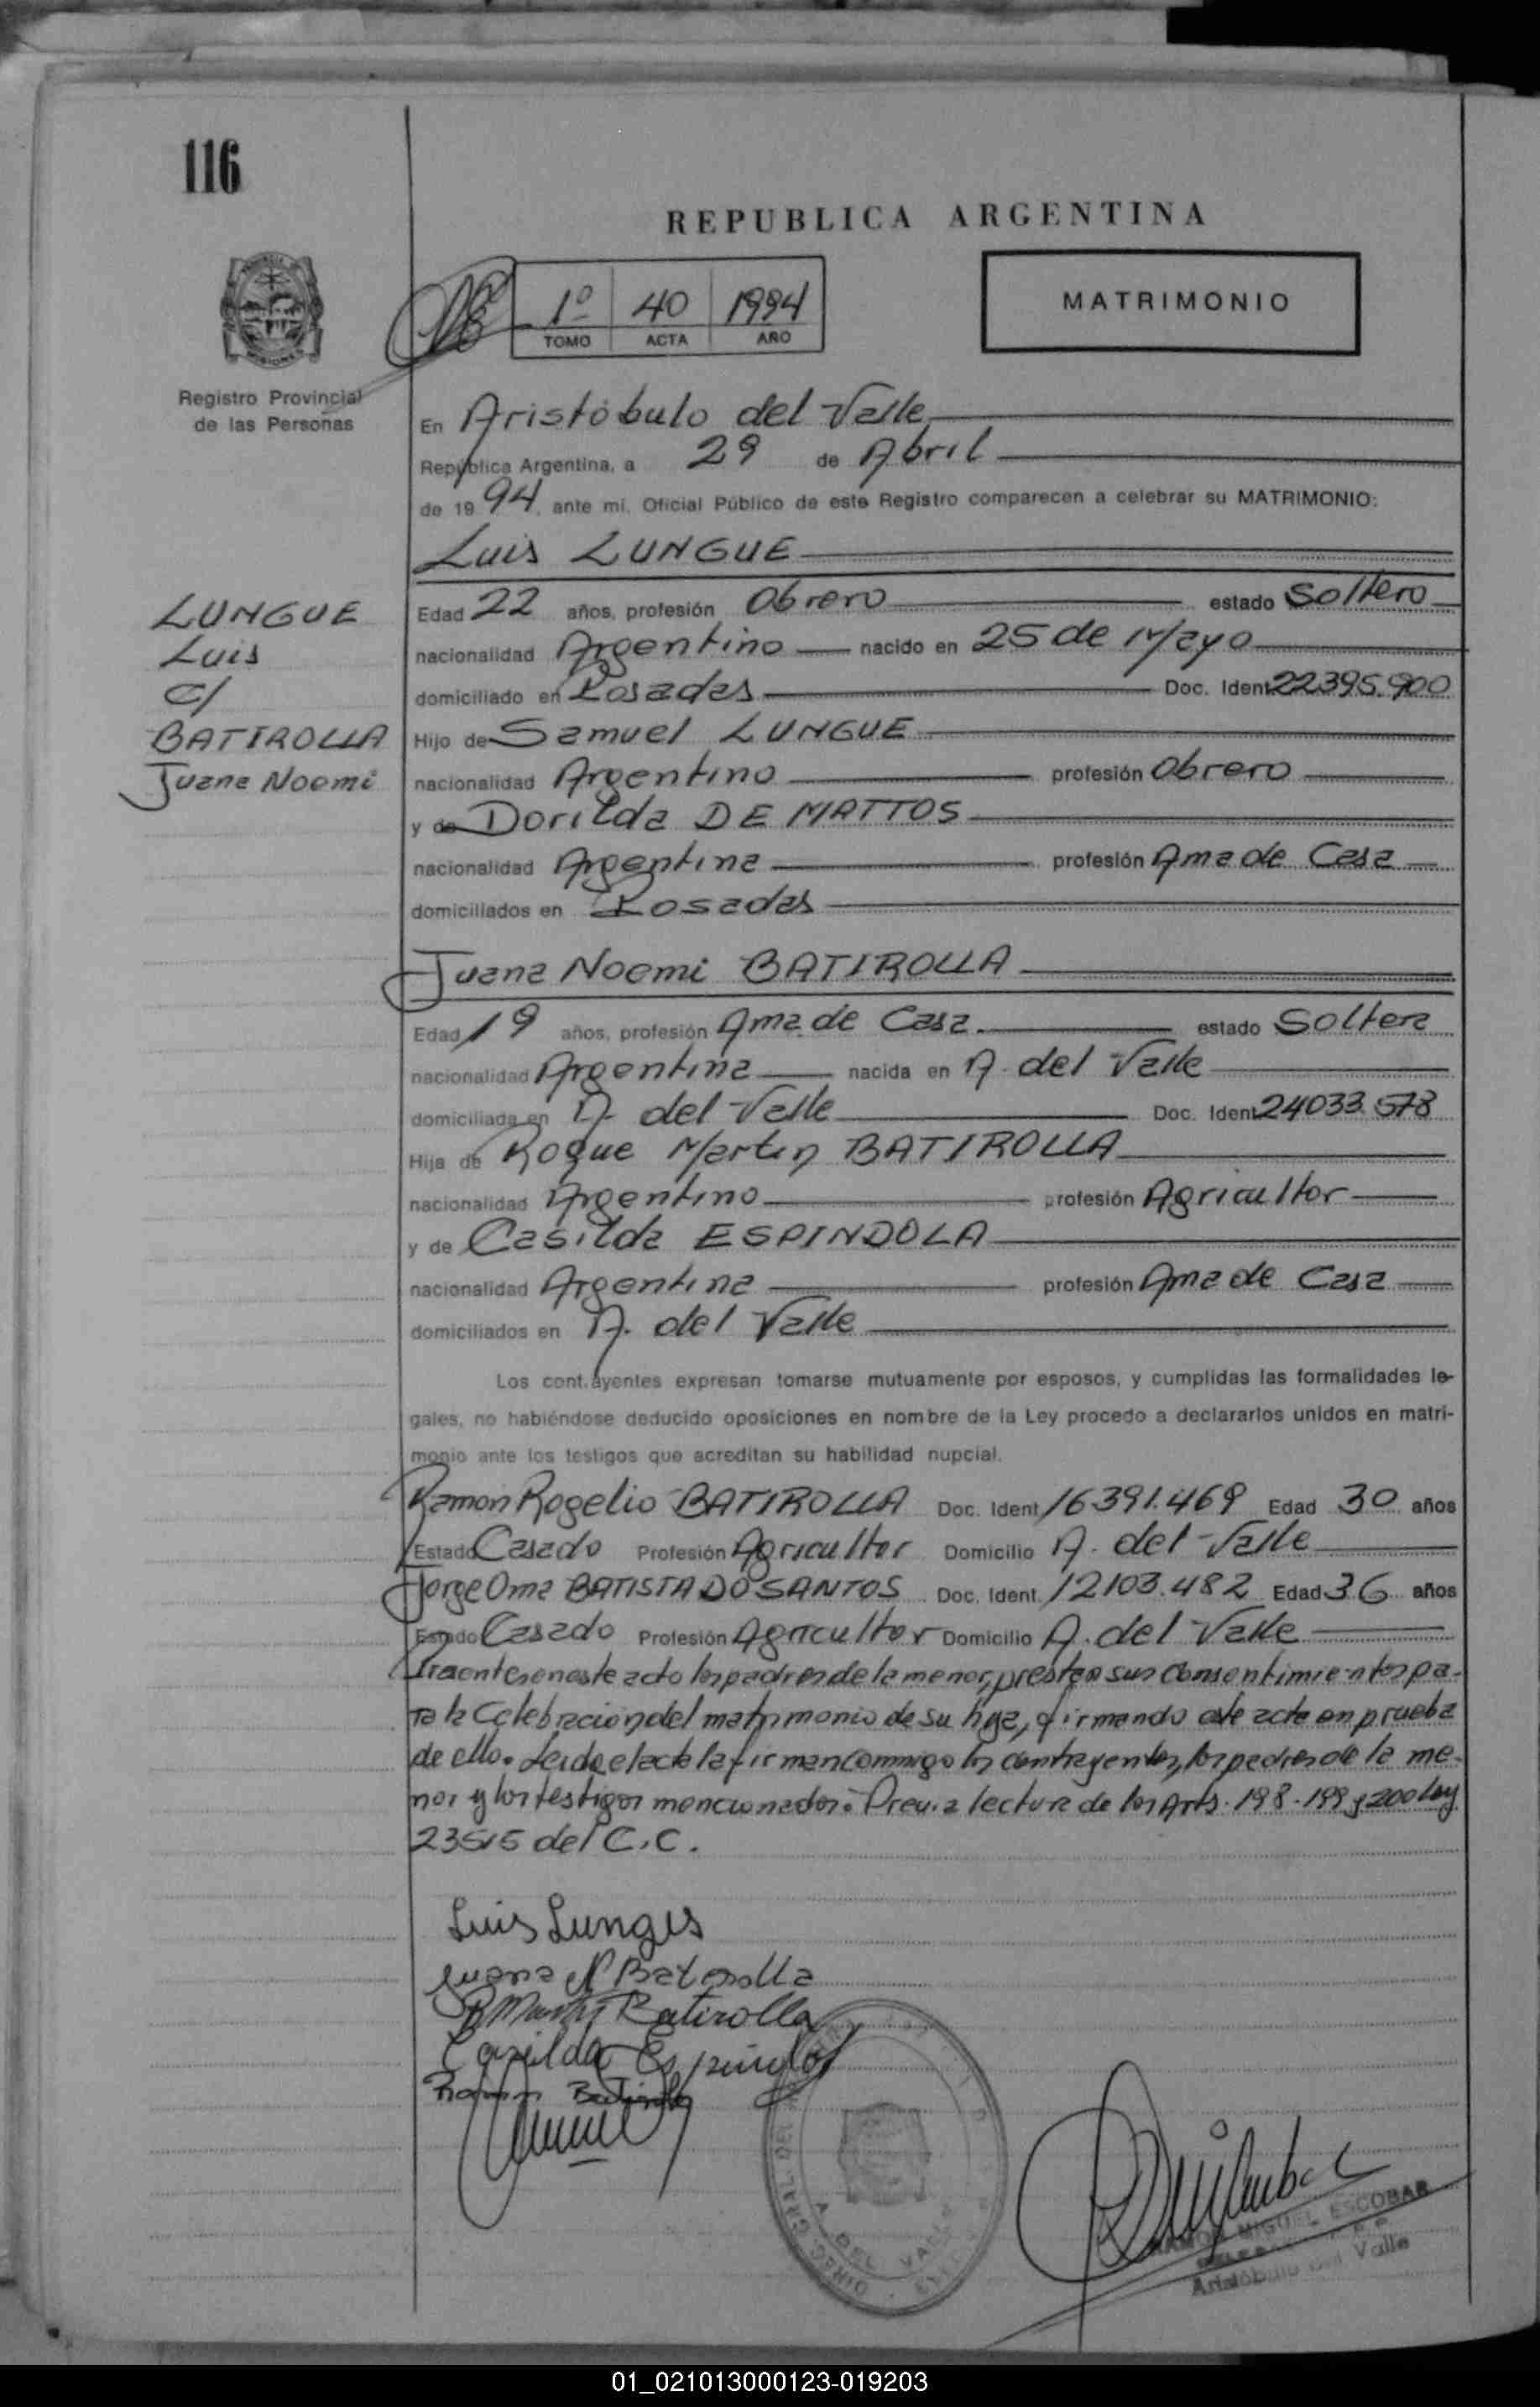 116
REPUBLICA ARGENTINA
1º 40 1994
TOMO ACTA AÑO
MATRIMONIO
MISIONES
Registro Provincial
de las Personas
En Aristóbulo del Valle
República Argentina, a 29 de Abril
de 1994, ante mí, Oficial Público de este Registro comparecen a celebrar su MATRIMONIO:
Luis LUNGUE
LUNGUE
Luis
C/
BATIROLLA
Juana Noemi
Edad 22 años, profesión Obrero estado Soltero
nacionalidad Argentino nacido en 25 de Mayo
domiciliado en Posadas Doc. Ident 22395.900
Hijo de Samuel LUNGUE
nacionalidad Argentino profesión Obrero
y de Dorilda DE MATTOS
nacionalidad Argentina profesión Ama de Casa
domiciliados en Posadas
Juana Noemi BATIROLLA
Edad 19 años, profesión Ama de Casa. estado Soltera
nacionalidad Argentina nacida en A. del Valle
domiciliada en A. del Valle Doc. Ident 24033.578
Hija de Roque Martin BATIROLLA
nacionalidad Argentino profesión Agricultor
y de Casilda ESPINDOLA
nacionalidad Argentina profesión Ama de Casa
domiciliados en A. del Valle
Los cont.ayentes expresan tomarse mutuamente por esposos, y cumplidas las formalidades le-
gales, no habiéndose deducido oposiciones en nombre de la Ley procedo a declararlos unidos en matri-
monio ante los testigos que acreditan su habilidad nupcial.
Ramon Rogelio BATIROLLA Doc. Ident 16391.469 Edad 30 años
Estado Casado Profesión Agricultor Domicilio A. del Valle
Jorge Oma BATISTA DO SANTOS Doc. Ident. 12103.482 Edad 36 años
Estado Casado Profesión Agricultor Domicilio A. del Valle
en este acto los padres de la menor, prestan sus consentimientos pa-
ra la Celebración del matrimonio de su hija, firmando este acta en prueba
de ello. Leida el acta la firman conmigo los contrayentes, los padres de la me-
nor y los testigos mencionados. Previa lectura de los Arts. 198-199 y 200 Ley
23515 del C.C.
Luis Lungis
Juana N Batirolla
R Martin Batirolla
Casilda Espindola
Ramon Batirolla
DIREC. GRAL. DEL
A. DEL VALLE
RAMON MIGUEL ESCOBAR
Aristóbulo del Valle
01_021013000123-019203